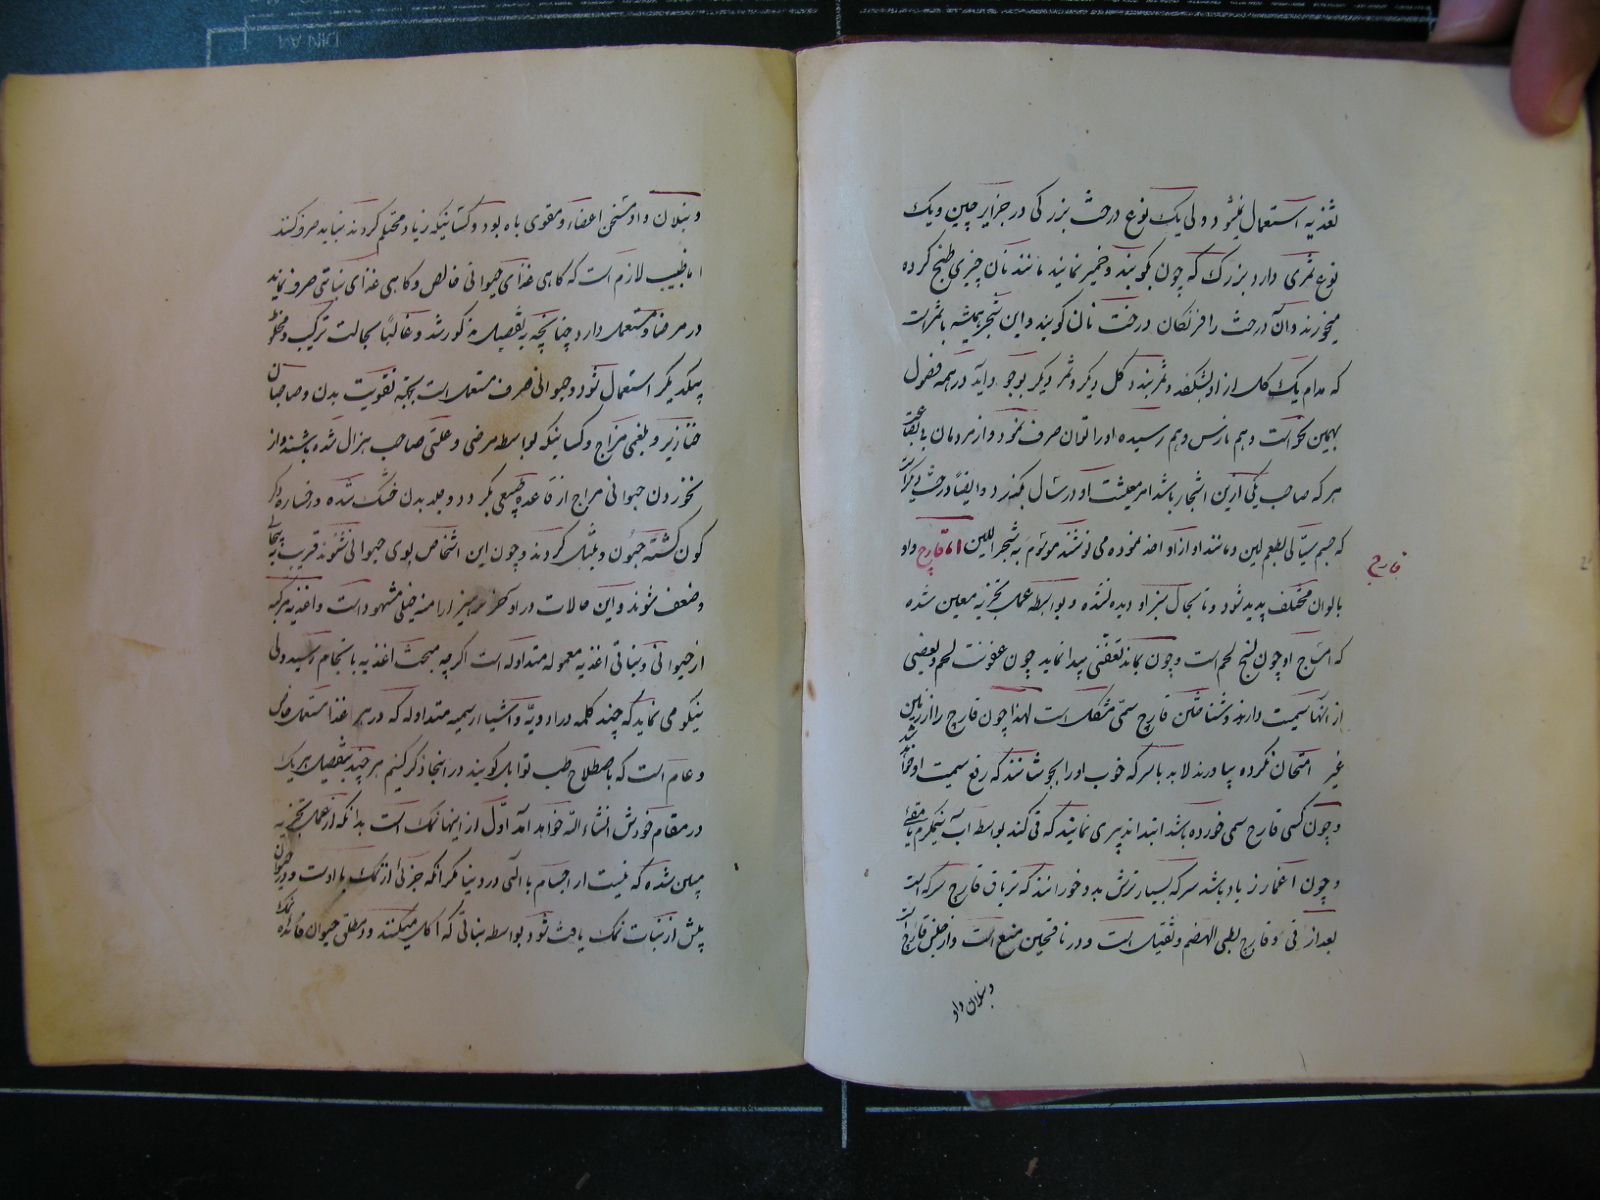 تغذیه استعمال نمیشود ولی یک نوع درخت بزرگی در جزایر چین و یک
نوع ثمری دارد بزرک که چون بکوبند و خمیر نمایند مانند نان چیزی طبخ کرده
میخورند و آن درخت را فرنکان درخت نان کویند و این شجر همیشه با ثمر است
که مدام یک کل از او بشکفد و ثمر بندد کل دیکر و ثمر دیکر بوجود آید در همه فصول
بهمین نحو است و هم نارس و هم رسیده او را توان صرف نمود و از مردمان
هرکه صاحب یکی ازین اشجار باشد امر معیشت او در سال بکذرد و ایضا درخت دیکر است
که جسم سیالی بطعم لبن و مانند او از او اخذ نموده می نوشند موسوم به شجر اللبن اما قارچ و او
قارچ
بالوان مختلف پدید شود و تا بحال سبز او دیده نشده و بواسطه عمل تجزیه معین شده
که امزج او چون لنج لحم است و چون بماند تعفنی پیدا نماید چون عفونت لحم و بعضی
از انها سمیت دارند و شناختن قارچ سمی مشکل است لهذا چون قارچ را از زمین
غیر امتحان کرده بیاورند لابد با سرکه خوب او را بجوشانند که رفع سمیت او خواهد شد
و چون کسی قارچ سمی خورده باشد ابتدا تدبیری نمایند که قی کند بواسطه آب نیمکرم یا مقیء
و چون اغما زیاد باشد سرکه بسیار ترش بدو خورانند که تریاق قارچ سرکه است
بعد از قی و قارچ بطی الهضم و ثقیل است و در ناقهین منع است و از جنس قارچ است
و بنلان و او
و بنلان و او مسخن اعضاء و مقوی باه بود و کسانیکه زیاد محتلم کردند نباید صرف کنند
اما طبیب لازم است که کاهی غذای حیوانی خالص و کاهی غذای نباتی صرف نمایند
در مرضا و مستعمل دارد چنانچه به تفصیل مذکور شد و غالبا بحالت ترکیب و مخلوط
بیکدیکر استعمال شود و حیوانی صرف مستعمل است بجهة تقویت بدن و صاحبان
خنازیر و بلغمی مزاج و کسانیکه بواسطه مرضی و علتی صاحب هزال شده باشند و از
نخوردن حیوانی مزاج از قاعده طبیعی بکردد و جلد بدن خشک شده و رخساره دکر
کون کشته و چون این اشخاص بوی حیوانی شنوند قریب به
و ضعف شوند و این حالات در اواخر صفر هر ارامنه خیلی مشهود است و اغذیه مرکبه
از حیوانی و نباتی اغذیه معموله متداوله است اکرچه مبحث اغذیه بانجام رسید ولی
نیکو می نماید که چند کلمه در ادویه و اشیاء رسمیه متداوله که در هر غذا مستعمل خاص
و عام است که باصطلاح طب توابل کویند در اینجا ذکر کنیم هر چند بتفصیل هریک
در مقام خودش انشاء الله خواهد آمد اول از اینها نمک است بدانکه از عمل تجزیه
مبین شده که نیست از اجسام با آلتی در دنیا مکر انکه جزئی از نمک با اوست و در حیوان
بیش از نبات نمک یافت شود بواسطه نباتی که اکل میکنند و در مطلق حیوان فائده نمک